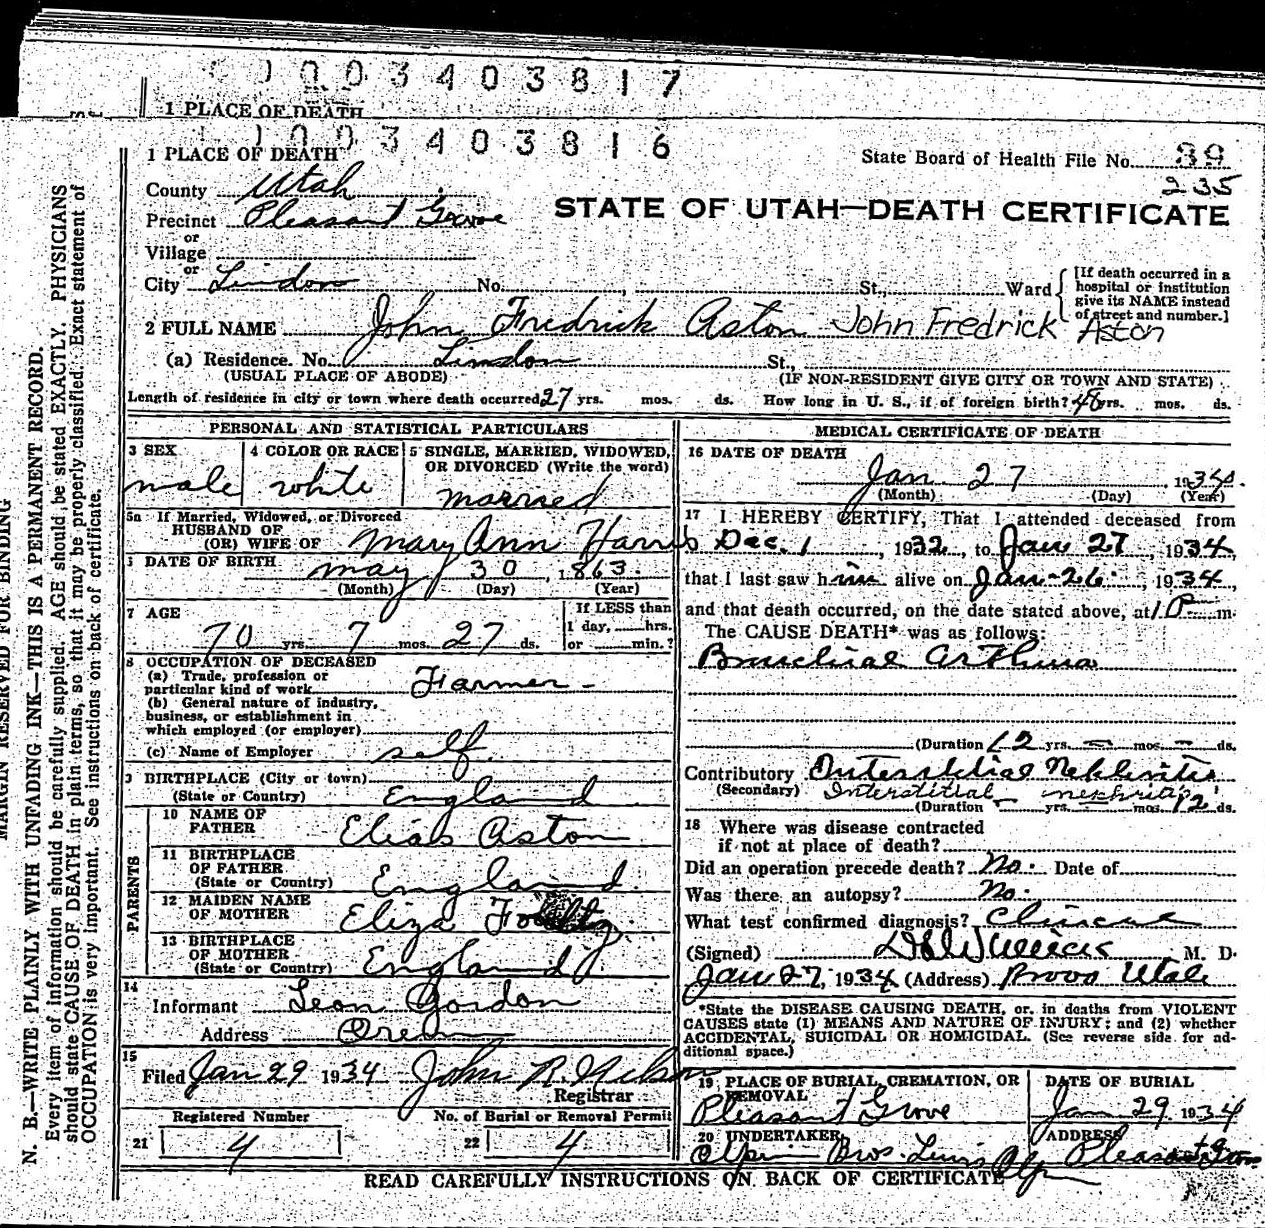 1003403817
1 PLACE OF DEATH
1003403816
1 PLACE OF DEATH
State Board of Health File No. 39
235
County Utah
STATE OF UTAH—DEATH CERTIFICATE
Precinct Pleasant Grove
or
Village
or
City Lindon No. , St., Ward
[If death occurred in a
hospital or institution
give its NAME instead
of street and number.]
2 FULL NAME John Fredrick Aston John Fredrick Aston
(a) Residence. No. Lindon St.,
(USUAL PLACE OF ABODE) (IF NON-RESIDENT GIVE CITY OR TOWN AND STATE)
Length of residence in city or town where death occurred 27 yrs. mos. ds. How long in U. S., if of foreign birth? 48 yrs. mos. ds.
PERSONAL AND STATISTICAL PARTICULARS
3 SEX 4 COLOR OR RACE 5 SINGLE, MARRIED, WIDOWED,
OR DIVORCED (Write the word)
male white married
5a If Married, Widowed, or Divorced
HUSBAND OF
(OR) WIFE OF Mary Ann Harris
DATE OF BIRTH may 30, 1863
(Month) (Day) (Year)
7 AGE If LESS than
1 day, hrs.
70 yrs. 7 mos. 27 ds. or min.?
8 OCCUPATION OF DECEASED
(a) Trade, profession or
particular kind of work Farmer
(b) General nature of industry,
business, or establishment in
which employed (or employer)
(c) Name of Employer self
9 BIRTHPLACE (City or town)
(State or Country) England
PARENTS
10 NAME OF
FATHER Elias Aston
11 BIRTHPLACE
OF FATHER
(State or Country) England
12 MAIDEN NAME
OF MOTHER Eliza
13 BIRTHPLACE
OF MOTHER
(State or Country) England
14
Informant Leon Gordon
Address Orem
15
Filed Jan 29 1934 John R. Nelson
Registrar
Registered Number No. of Burial or Removal Permit
21 4 22 4
MEDICAL CERTIFICATE OF DEATH
16 DATE OF DEATH
Jan 27 1934.
(Month) (Day) (Year)
17 I HEREBY CERTIFY, That I attended deceased from
Dec. 1, 1932, to Jan 27, 1934,
that I last saw him alive on Jan-26, 1934,
and that death occurred, on the date stated above, at 1 P m.
The CAUSE DEATH* was as follows:
Bronchial Asthma
(Duration 12 yrs. – mos. – ds.
Contributory Interstitial Nephritis
(Secondary) Interstitial nephritis
(Duration – yrs. mos. 12 ds.
18 Where was disease contracted
if not at place of death?
Did an operation precede death? No. Date of
Was there an autopsy? No.
What test confirmed diagnosis? Clinical
(Signed) M. D.
Jan 27, 1934 (Address) Provo Utah
*State the DISEASE CAUSING DEATH, or, in deaths from VIOLENT
CAUSES state (1) MEANS AND NATURE OF INJURY; and (2) whether
ACCIDENTAL, SUICIDAL OR HOMICIDAL. (See reverse side for ad-
ditional space.)
19 PLACE OF BURIAL, CREMATION, OR
REMOVAL
Pleasant Grove
DATE OF BURIAL
Jan 29 1934
20 UNDERTAKER
Bros. Lewis Olpin
ADDRESS
Pleasant Grove
READ CAREFULLY INSTRUCTIONS ON BACK OF CERTIFICATE
MARGIN RESERVED FOR BINDING
N. B.—WRITE PLAINLY WITH UNFADING INK—THIS IS A PERMANENT RECORD.
Every item of information should be carefully supplied. AGE should be stated EXACTLY. PHYSICIANS
should state CAUSE OF DEATH in plain terms, so that it may be properly classified. Exact statement of
OCCUPATION is very important. See instructions on back of certificate.